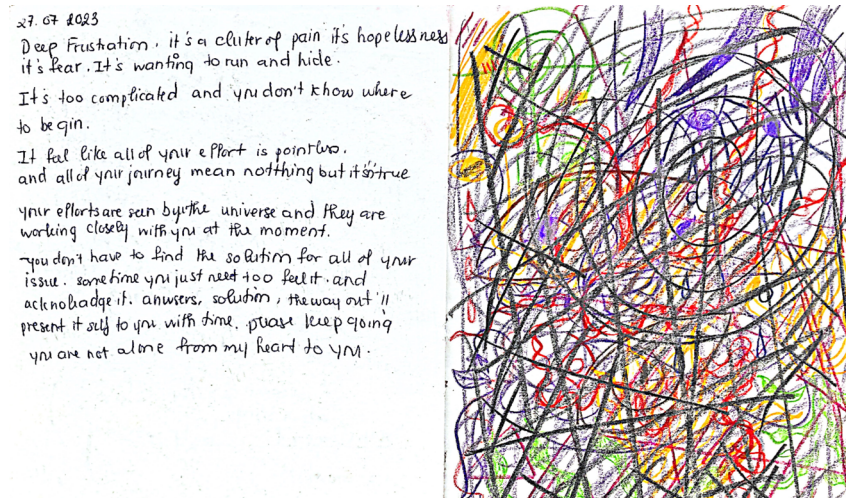 27.07 2023
Deep Frustation. it's a cluter of pain it's hopelessness
it's fear. It's wanting to run and hide.
It's too complicated and you don't know where
to begin.
It fal like all of your effort is pointless.
and all of your journey mean notthing but it's true
your efforts are seen by the universe and they are
working closely with you at the moment.
you don't have to find the solution for all of your
issue. sometime you just neet too feel it. and
acknolbadge it. anwsers, solution, the way out'll
present it self to you with time. please keep going
you are not alone from my heart to you.